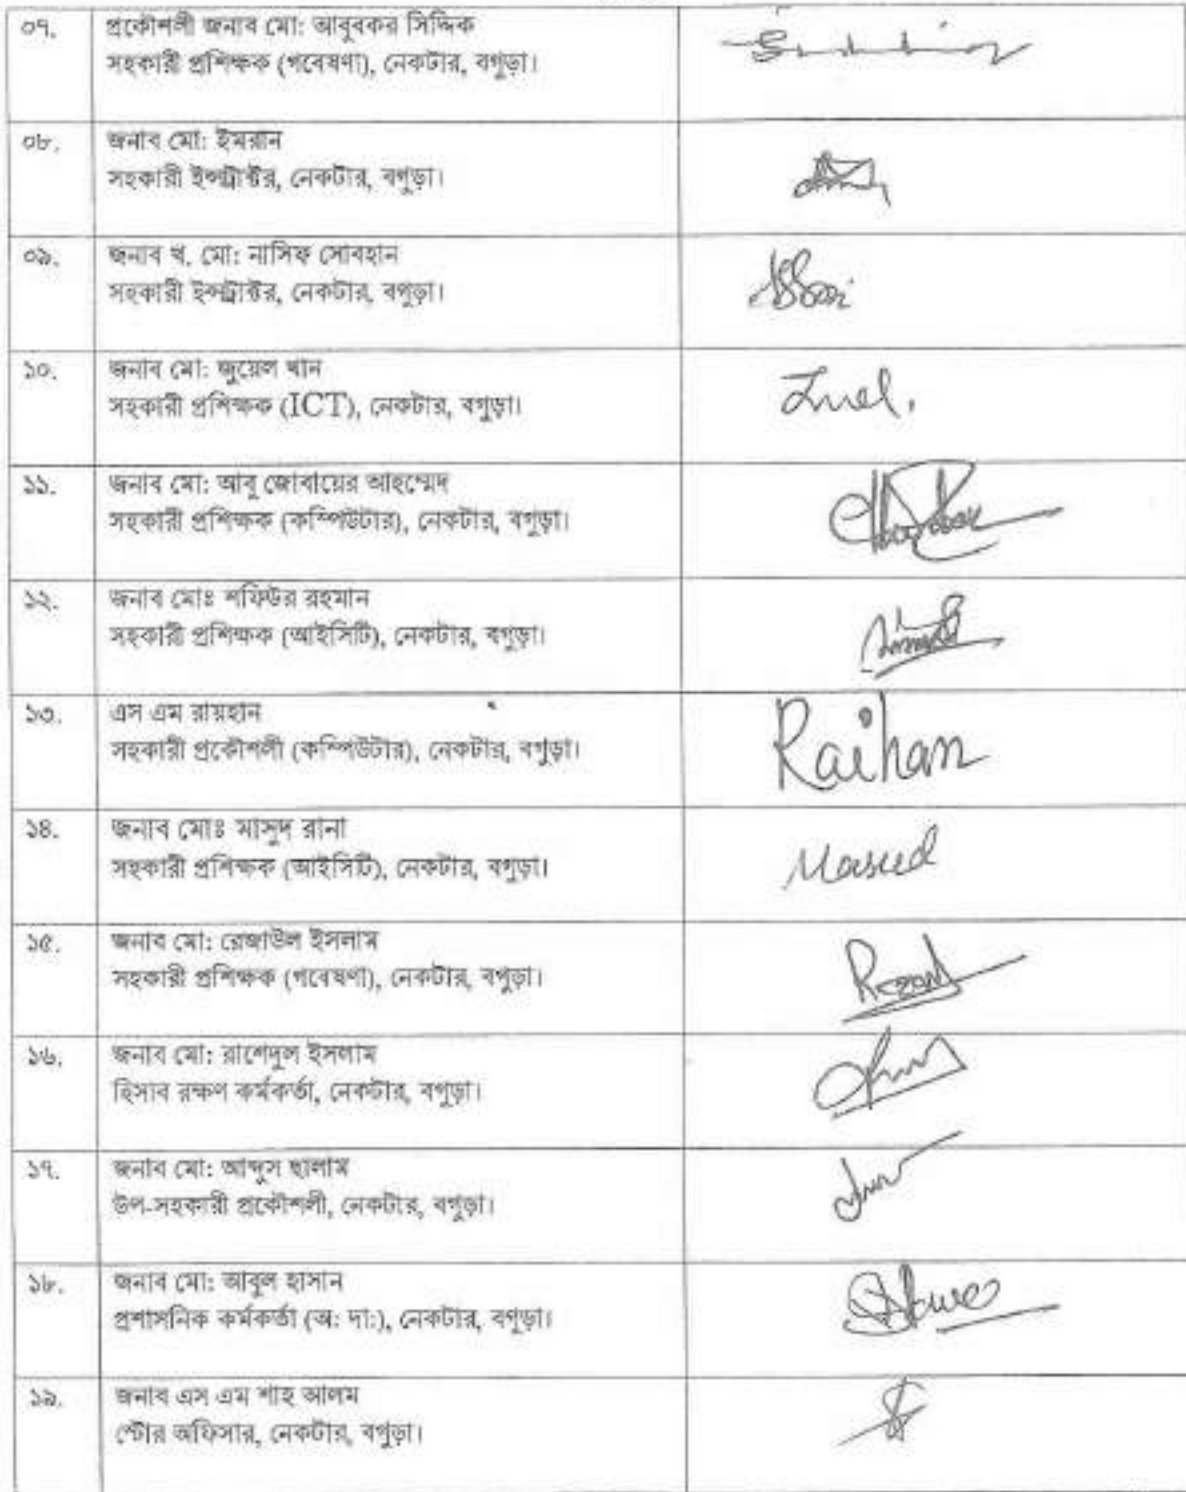 ০৭. প্রকৌশলী জনাব মো: আবুবকর সিদ্দিক
সহকারী প্রশিক্ষক (গবেষণা), নেকটার, বগুড়া।
০৮. জনাব মো: ইমরান
সহকারী ইন্সট্রাক্টর, নেকটার, বগুড়া।
০৯. জনাব খ. মো: নাসিফ সোবহান
সহকারী ইন্সট্রাক্টর, নেকটার, বগুড়া।
১০. জনাব মো: জুয়েল খান
সহকারী প্রশিক্ষক (ICT), নেকটার, বগুড়া।
১১. জনাব মো: আবু জোবায়ের আহম্মেদ
সহকারী প্রশিক্ষক (কম্পিউটার), নেকটার, বগুড়া।
১২. জনাব মোঃ শফিউর রহমান
সহকারী প্রশিক্ষক (আইসিটি), নেকটার, বগুড়া।
১৩. এস এম রায়হান Raihan
সহকারী প্রকৌশলী (কম্পিউটার), নেকটার, বগুড়া।
১৪. জনাব মোঃ মাসুদ রানা Masud
সহকারী প্রশিক্ষক (আইসিটি), নেকটার, বগুড়া।
১৫. জনাব মো: রেজাউল ইসলাম
সহকারী প্রশিক্ষক (গবেষণা), নেকটার, বগুড়া।
১৬. জনাব মো: রাশেদুল ইসলাম
হিসাব রক্ষণ কর্মকর্তা, নেকটার, বগুড়া।
১৭. জনাব মো: আব্দুস ছালাম
উপ-সহকারী প্রকৌশলী, নেকটার, বগুড়া।
১৮. জনাব মো: আবুল হাসান
প্রশাসনিক কর্মকর্তা (অ: দা:), নেকটার, বগুড়া।
১৯. জনাব এস এম শাহ আলম
স্টোর অফিসার, নেকটার, বগুড়া।